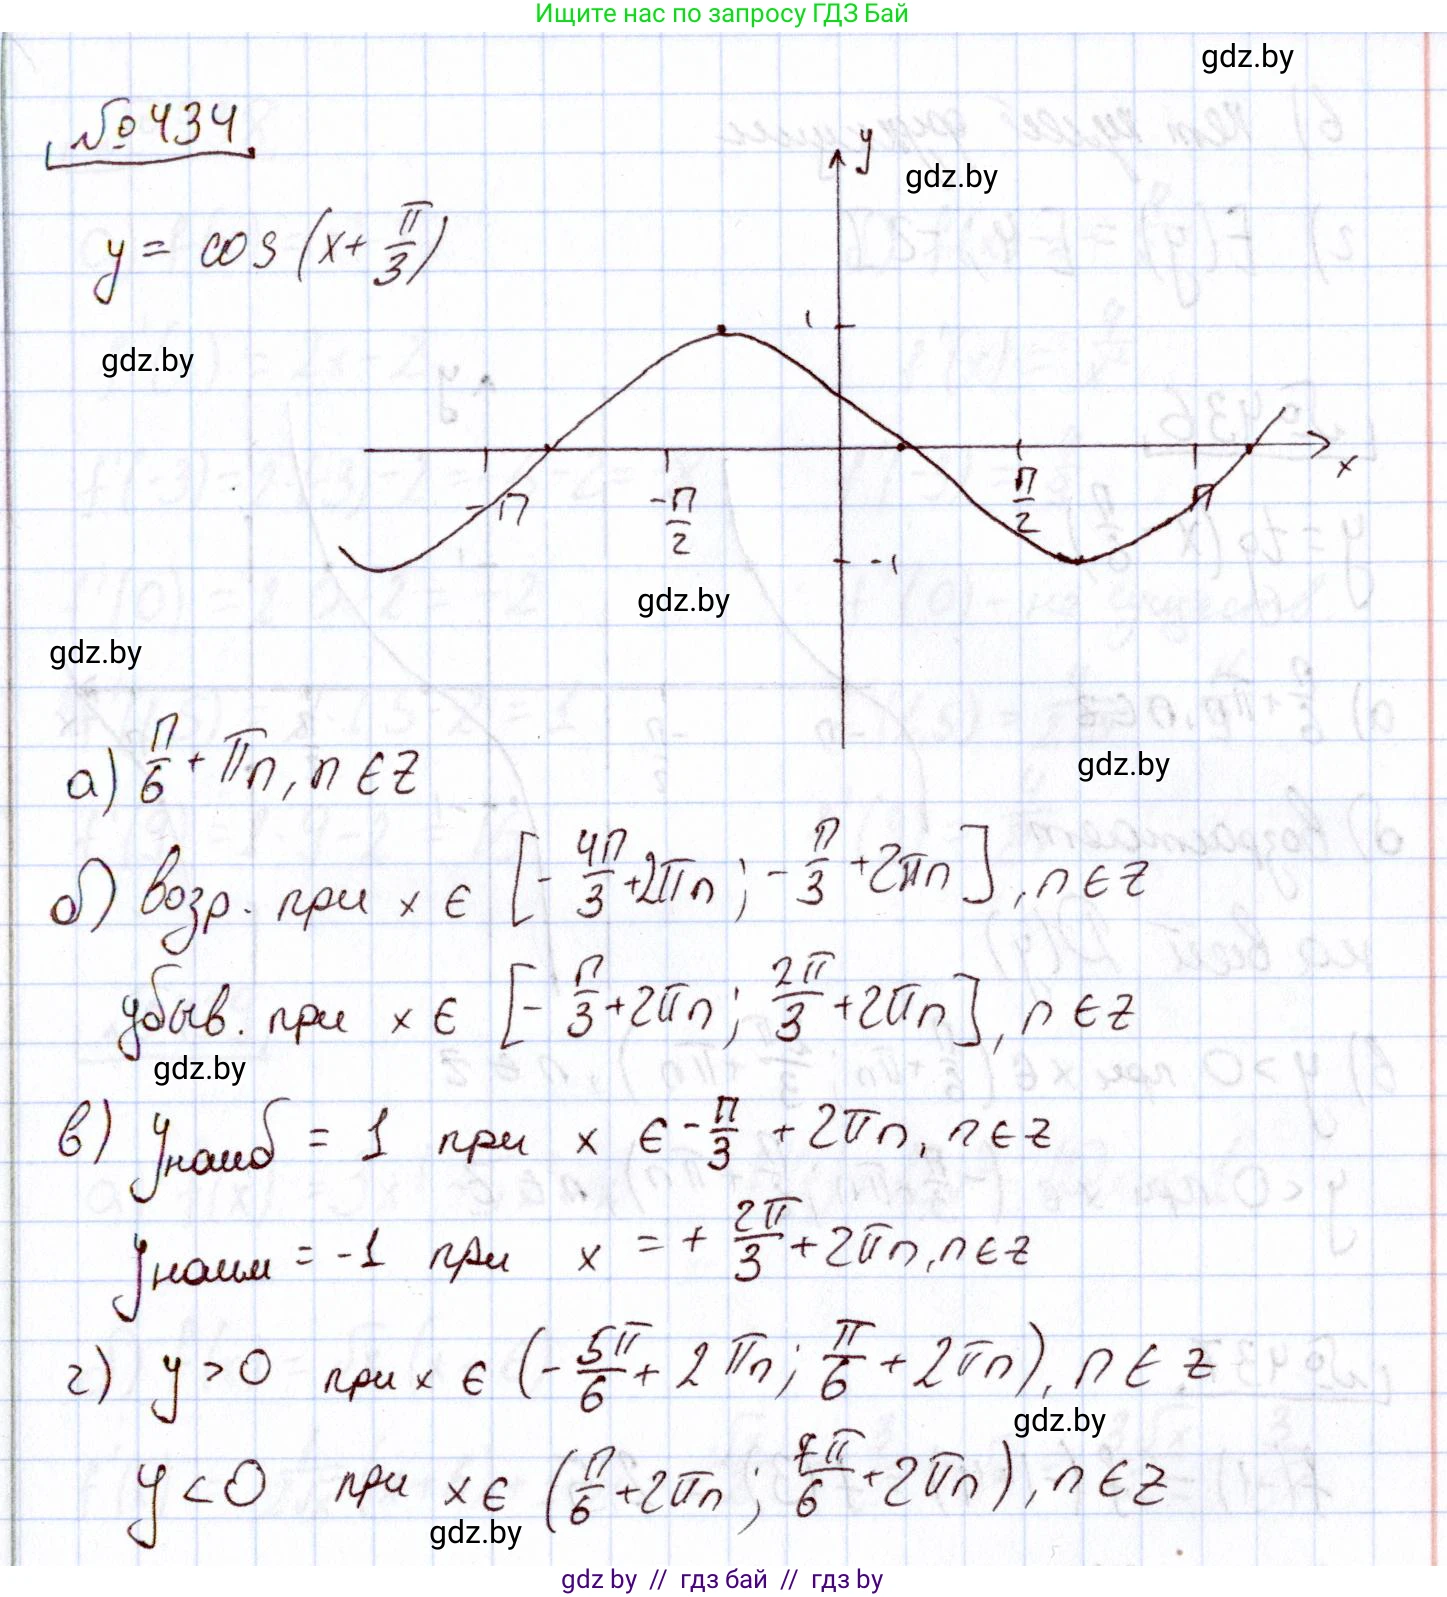 Ищите нас по запросу ГДЗ Бай
gdz.by
№434
y
gdz.by
y = cos (x + π/3)
1
gdz.by
x
-π
-π/2
π/2
π
-1
gdz.by
gdz.by
gdz.by
а) π/6 + πn, n ∈ Z
б) возр. при x ∈ [-4π/3 + 2πn ; -π/3 + 2πn], n ∈ Z
убыв. при x ∈ [-π/3 + 2πn ; 2π/3 + 2πn], n ∈ Z
gdz.by
в) yнаиб = 1 при x ∈ -π/3 + 2πn, n ∈ Z
yнаим = -1 при x = + 2π/3 + 2πn, n ∈ Z
г) y > 0 при x ∈ (-5π/6 + 2πn ; π/6 + 2πn), n ∈ Z
gdz.by
y < 0 при x ∈ (π/6 + 2πn ; 7π/6 + 2πn), n ∈ Z
gdz.by
gdz by // гдз бай // гдз by